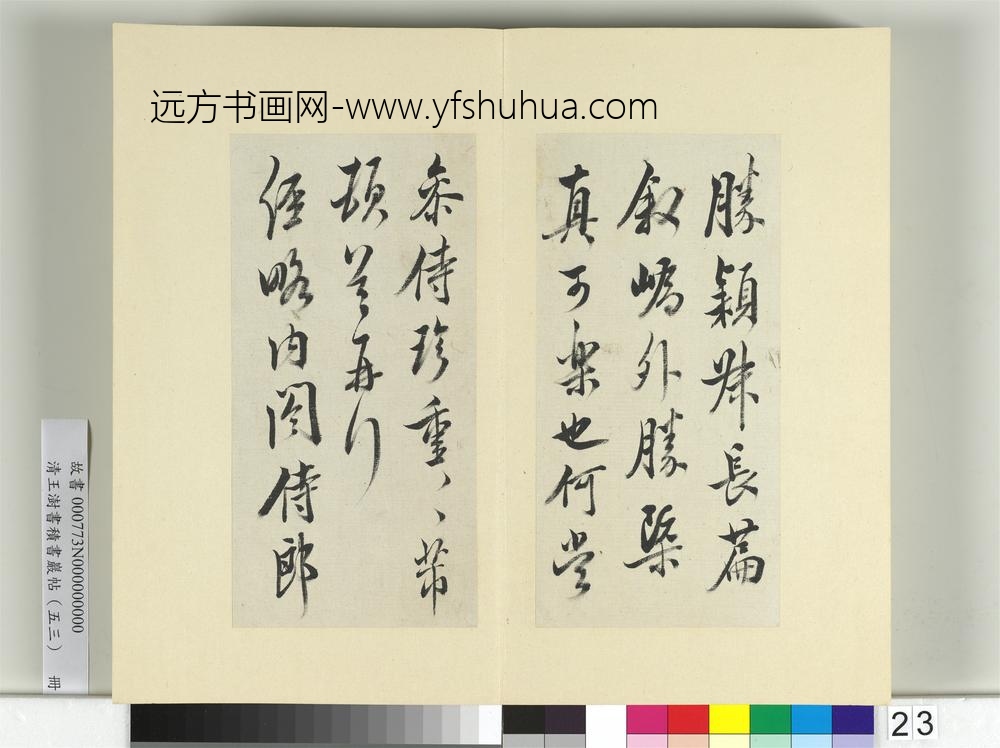 远方书画网-www.yfshuhua.com
勝穎長篇
叙嶠外勝槩
真可樂也何當
叅侍珍重、、芾
頓首再行
經略内閣侍郎
故書 000773N000000000
清王澍書積書巖帖（五三） 冊
23